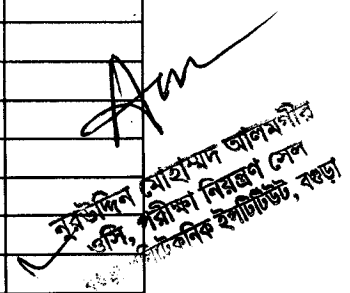 নুরউদ্দিন মোহাম্মদ আলমগীর
ওসি, পরীক্ষা নিয়ন্ত্রণ সেল
পলিটেকনিক ইন্সটিটিউট, বগুড়া